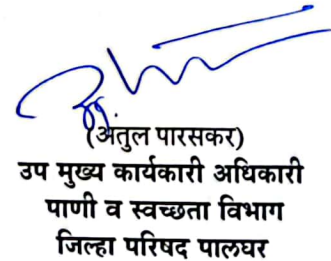 (अतुल पारसकर)
उप मुख्य कार्यकारी अधिकारी
पाणी व स्वच्छता विभाग
जिल्हा परिषद पालघर